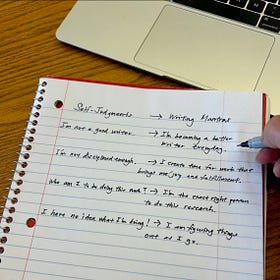 Self-Judgments → Writing Mantras
I'm not a good writer. → I'm becoming a better
writer everyday.
I'm not disciplined enough. → I create time for work that
brings me joy and fulfillment.
Who am I to be doing this work? → I'm the exact right person
to do this research.
I have no idea what I'm doing! → I am figuring things
out as I go.